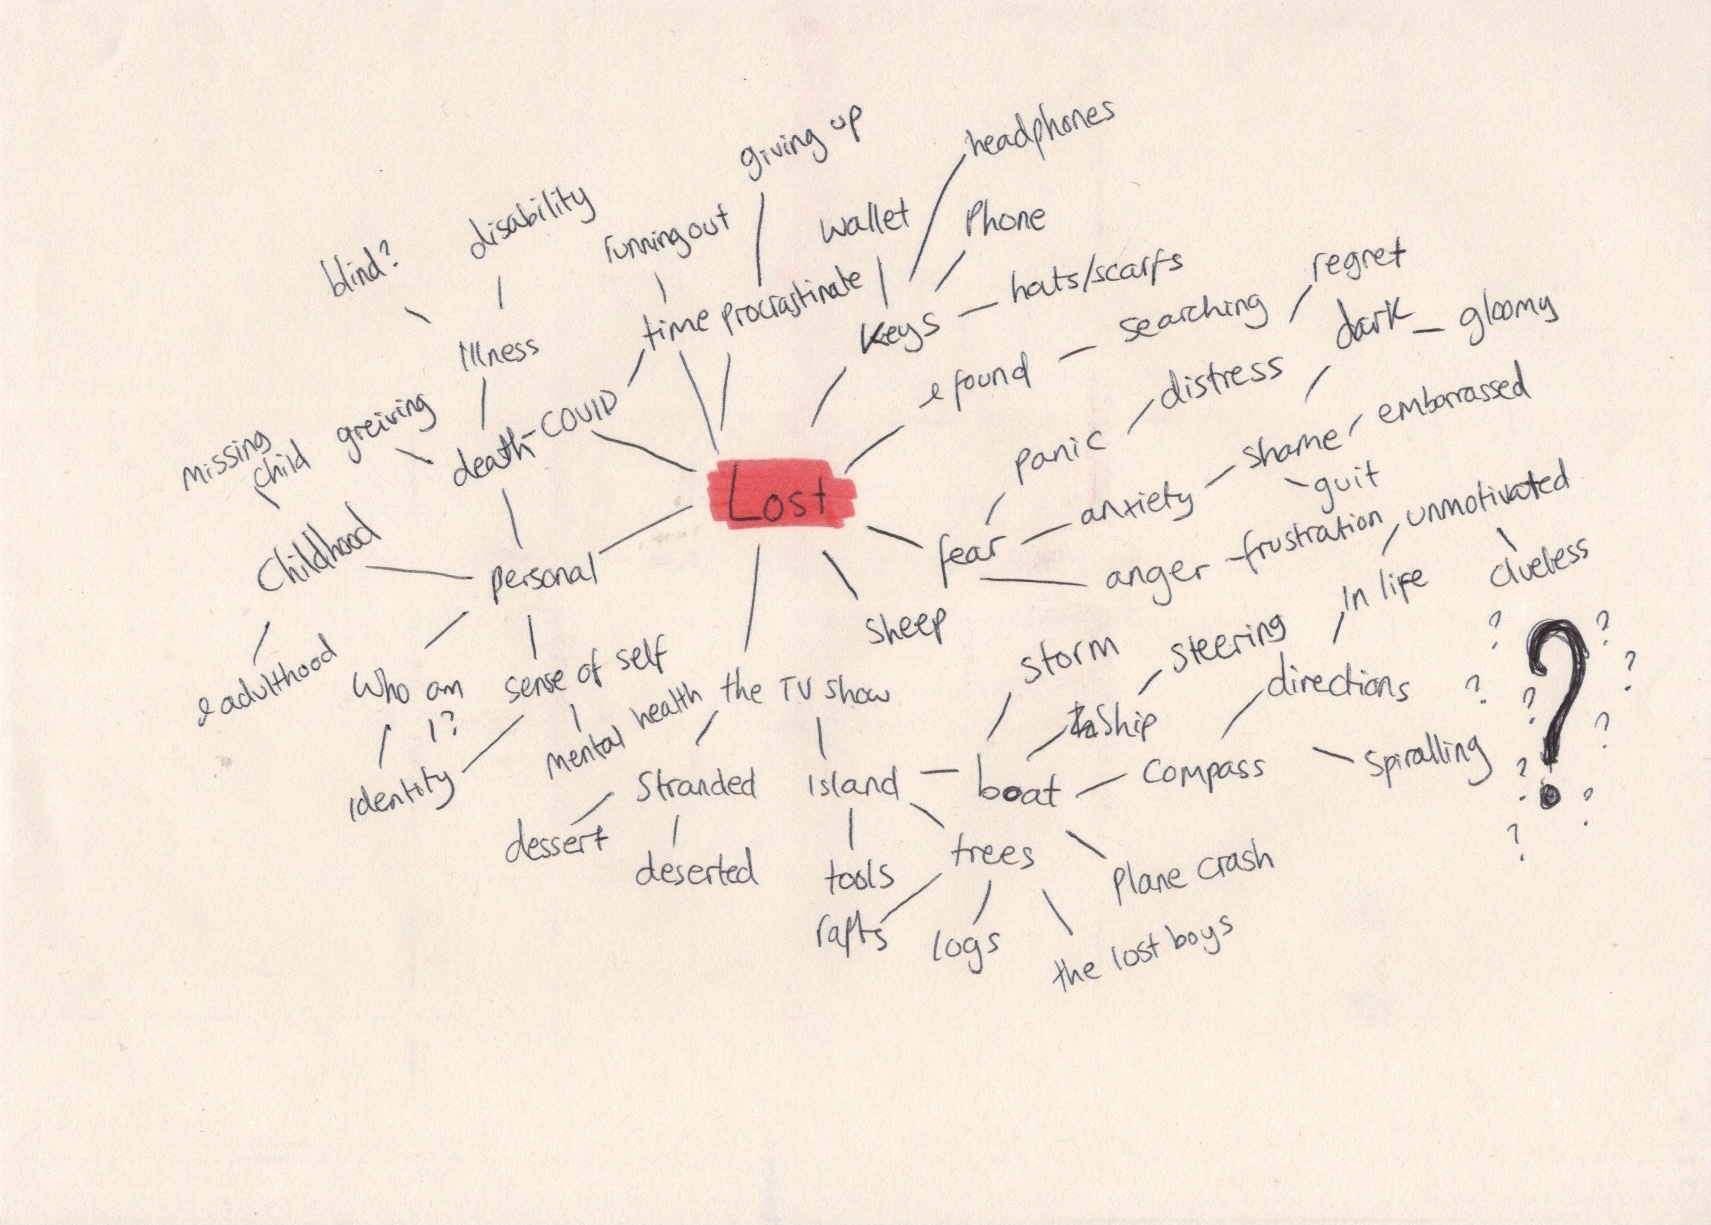 giving up
headphones
disability
running out
wallet
Phone
blind?
time
procrastinate
Keys
hats/scarfs
searching
regret
dark
gloomy
Illness
& found
distress
embarrassed
greiving
COVID
death
missing
child
panic
shame
guit
Lost
anxiety
unmotivated
frustration
Childhood
personal
fear
anger
clueless
In life
sheep
storm
steering
& adulthood
Who am
I?
sense of self
mental health
the TV show
directions
Ship
identity
Stranded
Island
boat
Compass
Spiralling
dessert
deserted
tools
trees
Plane crash
rafts
logs
the lost boys
?
? ? ? ? ? ? ? ? ? ?